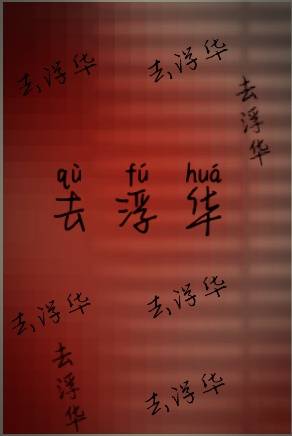 去、浮华
去、浮华
去浮华
qù fú huá
去浮华
去、浮华
去、浮华
去浮华
去、浮华